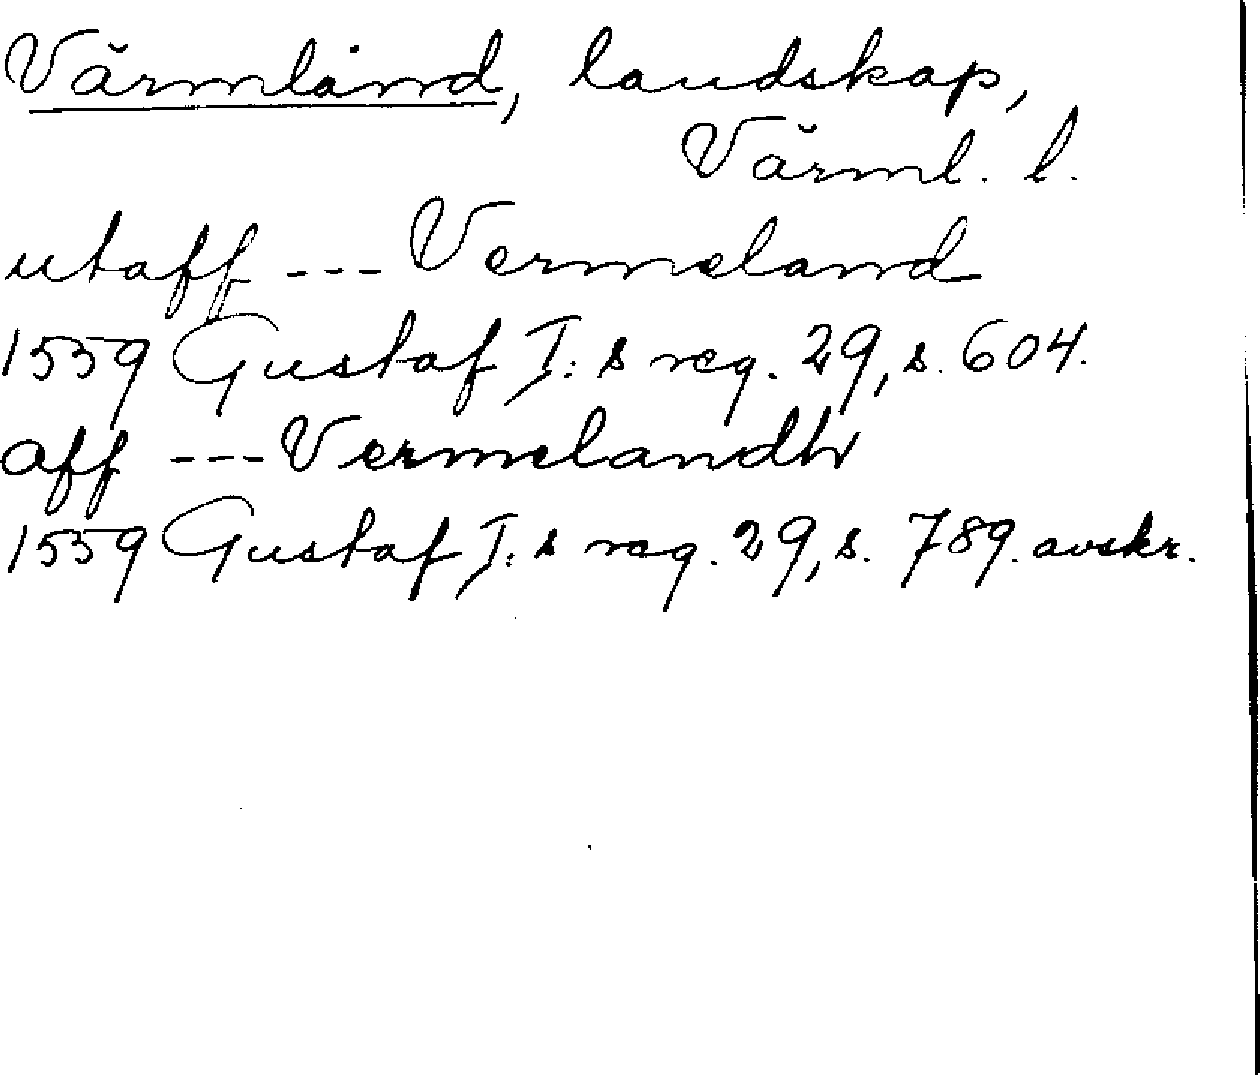 Värmland, landskap,
Värml. l.
utaff --- Vermeland
1559 Gustaf I:s reg. 29, s. 604.
aff --- Vermelandh
1559 Gustaf I:s reg. 29, s. 789. avskr.